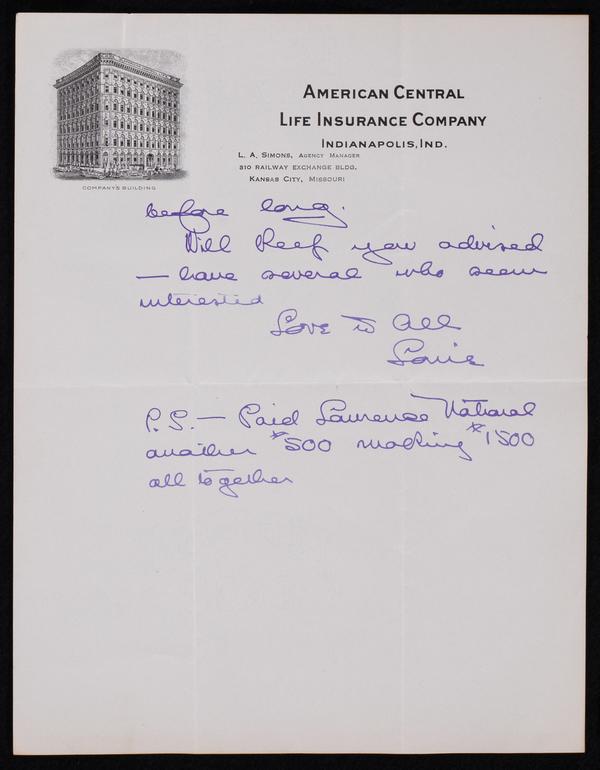 AMERICAN CENTRAL
LIFE INSURANCE COMPANY
INDIANAPOLIS, IND.
L. A. SIMONS, AGENCY MANAGER
310 RAILWAY EXCHANGE BLDG.
KANSAS CITY, MISSOURI
COMPANY'S BUILDING
before long.
Will keep you advised
— have several who seem
interested
Love to all
Louie
P.S. — Paid Lawrence National
another $500 making $1500
all together